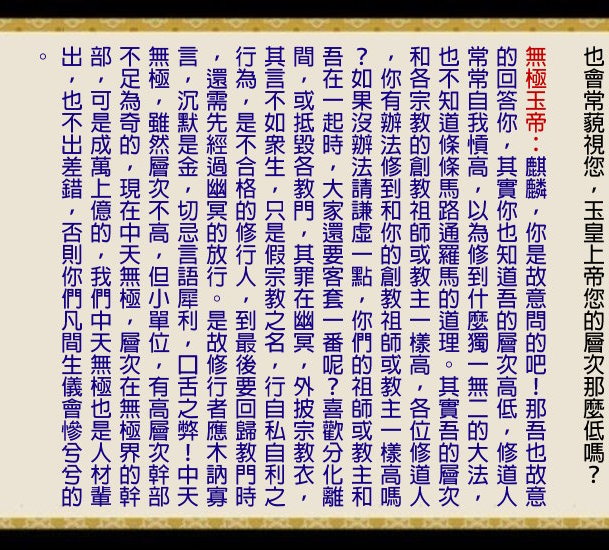 也會常藐視您，玉皇上帝您的層次那麼低嗎？
無極玉帝：麒麟，你是故意問的吧！那吾也故意
的回答你，其實你也知道吾的層次高低，修道人
常常自我憤高，以為修到什麼獨一無二的大法，
也不知道條條馬路通羅馬的道理。其實吾的層次
和各宗教的創教祖師或教主一樣高，各位修道人
，你有辦法修到和你的創教祖師或教主一樣高嗎
？如果沒辦法請謙虛一點，你們的祖師或教主和
吾在一起時，大家還要客套一番呢？喜歡分化離
間，或抵毀各教門，其罪在幽冥，外披宗教衣，
其言不如衆生，只是假宗教之名，行自私自利之
行為，是不合格的修行人，到最後要回歸教門時
，還需先經過幽冥的放行。是故修行者應木訥寡
言，沉默是金，切忌言語犀利，口舌之弊！中天
無極，雖然層次不高，但小單位，有高層次幹部
不足為奇的，現在中天無極，層次在無極界的幹
部，可是成萬上億的，我們中天無極也是人材輩
出，也不出差錯，否則你們凡間生儀會慘兮兮的
。